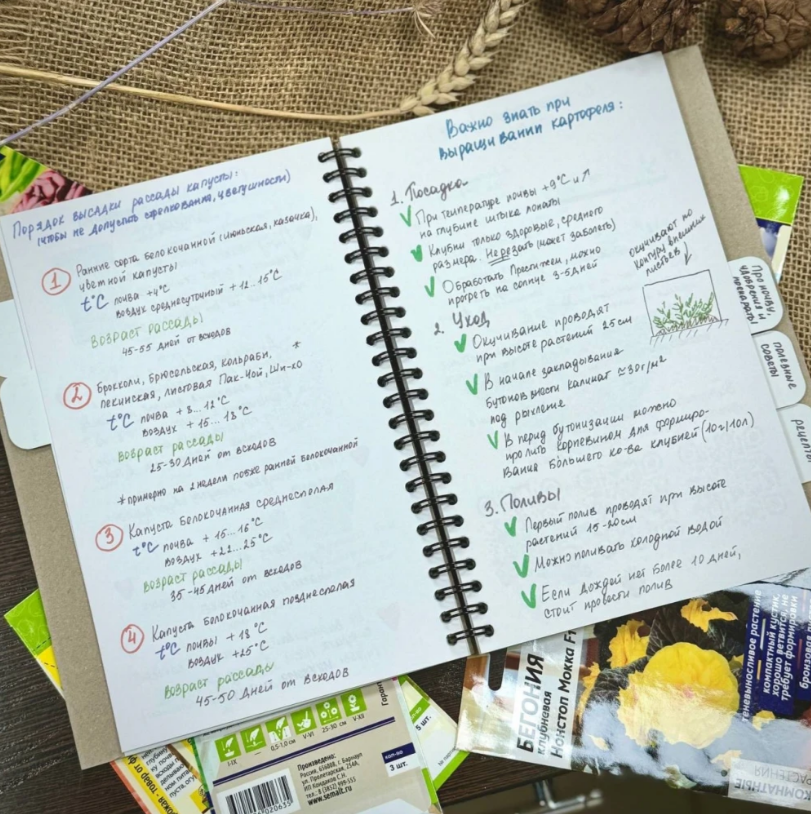 Порядок высадки рассады капусты:
(чтобы не допустить стрелкования, цветушности)
1 Ранние сорта белокочанной (июньская, казачка),
цветной капусты
t°C почва +4°C
воздух среднесуточный +12..15°C
возраст рассады
45-55 дней от всходов
2 Брокколи, брюсельская, кольраби, *
пекинская, листовая Пак-Чой, Ши-ко
t°C почва +8...12°C
воздух +15...18°C
возраст рассады
25-30 дней от всходов
* примерно на 2 недели позже ранней белокочанной
3 Капуста белокочанная среднеспелая
t°C почва +15...16°C
воздух +22...25°C
возраст рассады
35-45 дней от всходов
4 Капуста белокочанная позднеспелая
t°C почвы +18°C
воздух +25°C
возраст рассады
45-50 дней от всходов
Важно знать при
выращивании картофеля:
1. Посадка
При температуре почвы +9°C и ↑
на глубине штыка лопаты
Клубни только здоровые, среднего
размера. Не резать (может заболеть)
Обработать Престижем, можно
прогреть на солнце 3-5 дней
окучивают по
контуру внешних
листьев
2. Уход
Окучивание проводят
при высоте растений 25см
В начале закладывания
бутонов внести калимаг ≈30г/м2
под рыхление
В период бутонизации можно
пролить корневином для формиро-
вания большего ко-ва клубней (10г/10л)
3. Поливы
Первый полив проводят при высоте
растений 15-20см
Можно поливать холодной водой
Если дождей нет более 10 дней,
стоит провести полив
Про почву,
удобрения и
препараты
полезные
советы
рецепты
БЕГОНИЯ
клубневая
Нонстоп Мокка
теневыносливое растение
компактный кустик,
хорошо ветвится, не
требует формировки
КОМНАТНЫЕ
РАСТЕНИЯ
I-IX
0,5-1,0 см
V-VI
25-30 см
V-XII
Произведено:
Россия, 656008, г. Барнаул
ул. Пролетарская, 254А,
ИП Кондаков С.Н.
тел. 8 (3852) 699-555
www.semalt.ru
3 шт.
5 шт.